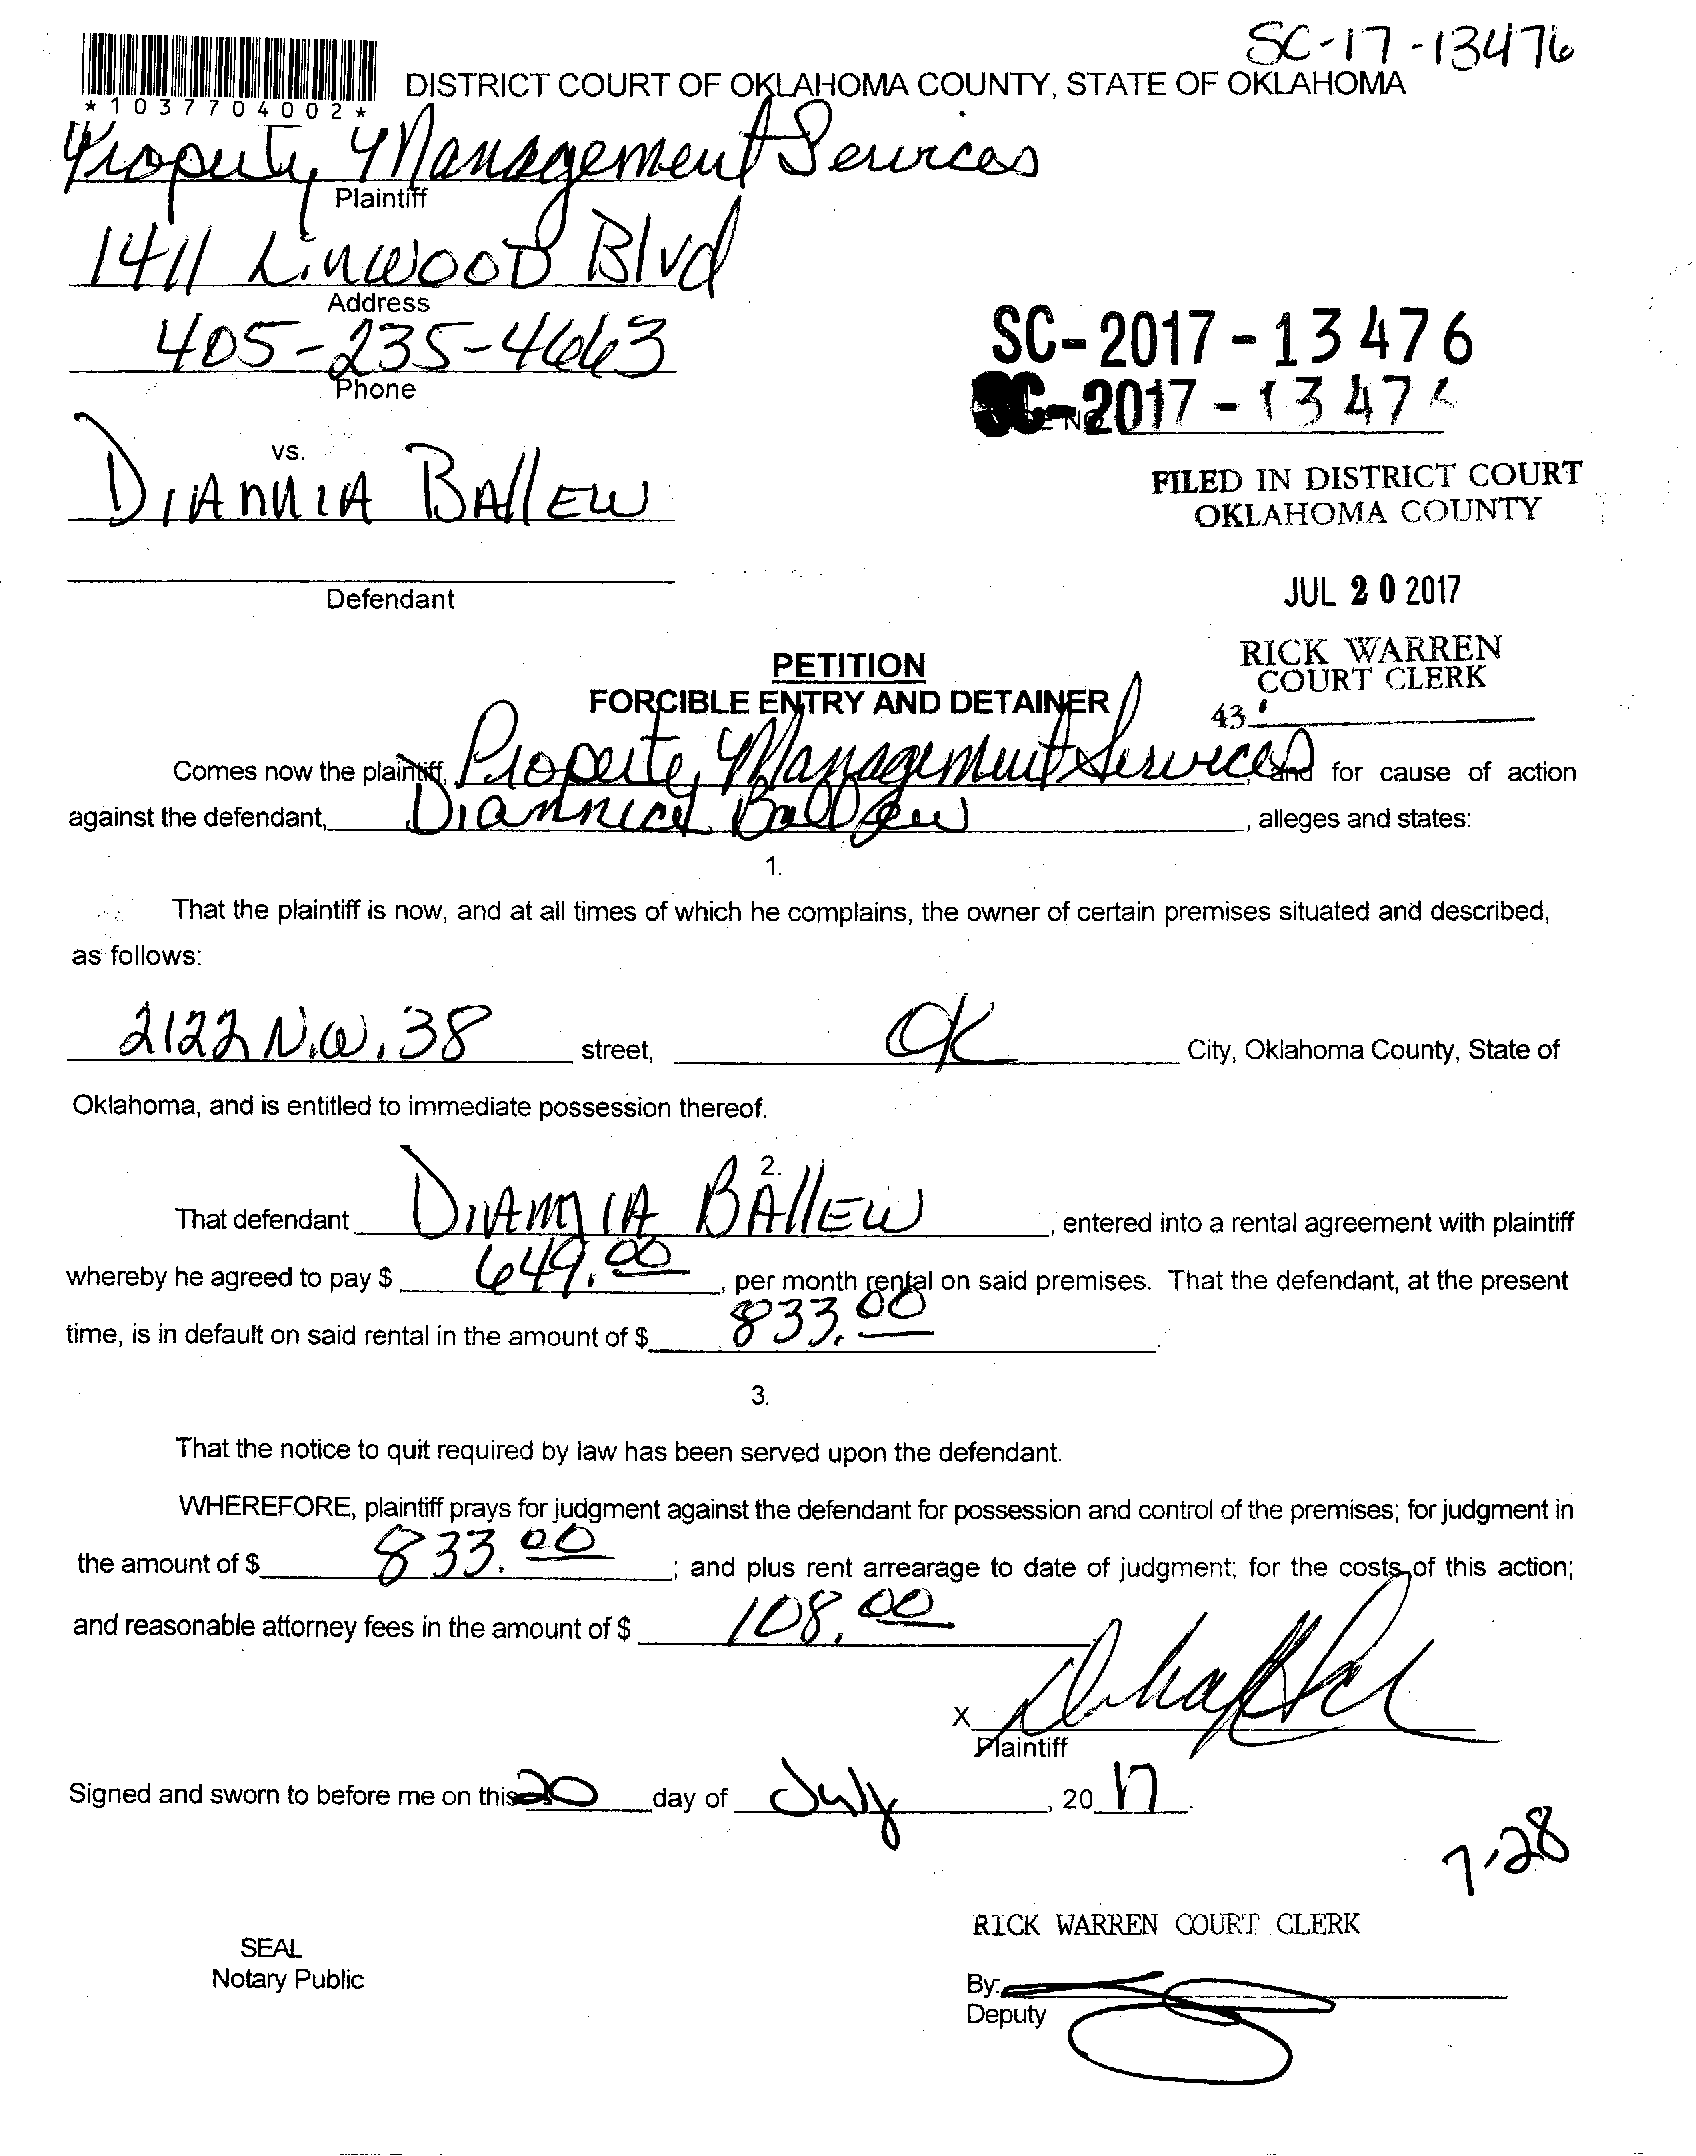 SC-17-13476
*1037704002*
DISTRICT COURT OF OKLAHOMA COUNTY, STATE OF OKLAHOMA
Property Management Services
Plaintiff
1411 Linwood Blvd
Address
405-235-4663
Phone
SC-2017-13476
SC-2017-1347
vs.
DIANNIA BAllEW
FILED IN DISTRICT COURT
OKLAHOMA COUNTY
Defendant
JUL 20 2017
RICK WARREN
COURT CLERK
43
PETITION
FORCIBLE ENTRY AND DETAINER
Comes now the plaintiff, Property Management Services, and for cause of action
against the defendant, Diannia Ballew, alleges and states:
1.
That the plaintiff is now, and at all times of which he complains, the owner of certain premises situated and described,
as follows:
2122 N.W. 38 street, OK City, Oklahoma County, State of
Oklahoma, and is entitled to immediate possession thereof.
2.
That defendant DIANNIA BAllEW, entered into a rental agreement with plaintiff
whereby he agreed to pay $ 649.00, per month rental on said premises. That the defendant, at the present
time, is in default on said rental in the amount of $ 833.00.
3.
That the notice to quit required by law has been served upon the defendant.
WHEREFORE, plaintiff prays for judgment against the defendant for possession and control of the premises; for judgment in
the amount of $ 833.00; and plus rent arrearage to date of judgment; for the costs of this action;
and reasonable attorney fees in the amount of $ 108.00
X
Plaintiff
Signed and sworn to before me on this 20 day of July, 20 17.
7.28
RICK WARREN COURT CLERK
SEAL
Notary Public
By:
Deputy